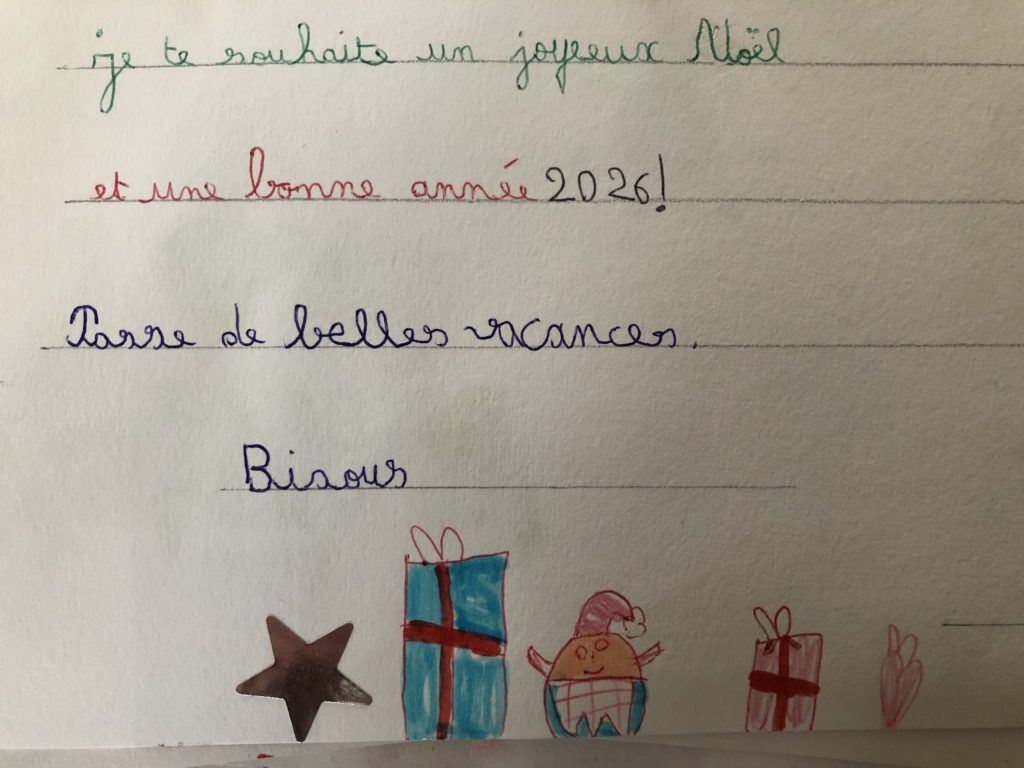 je te souhaite un joyeux Noël
et une bonne année 2026!
Passe de belles vacances.
Bisous